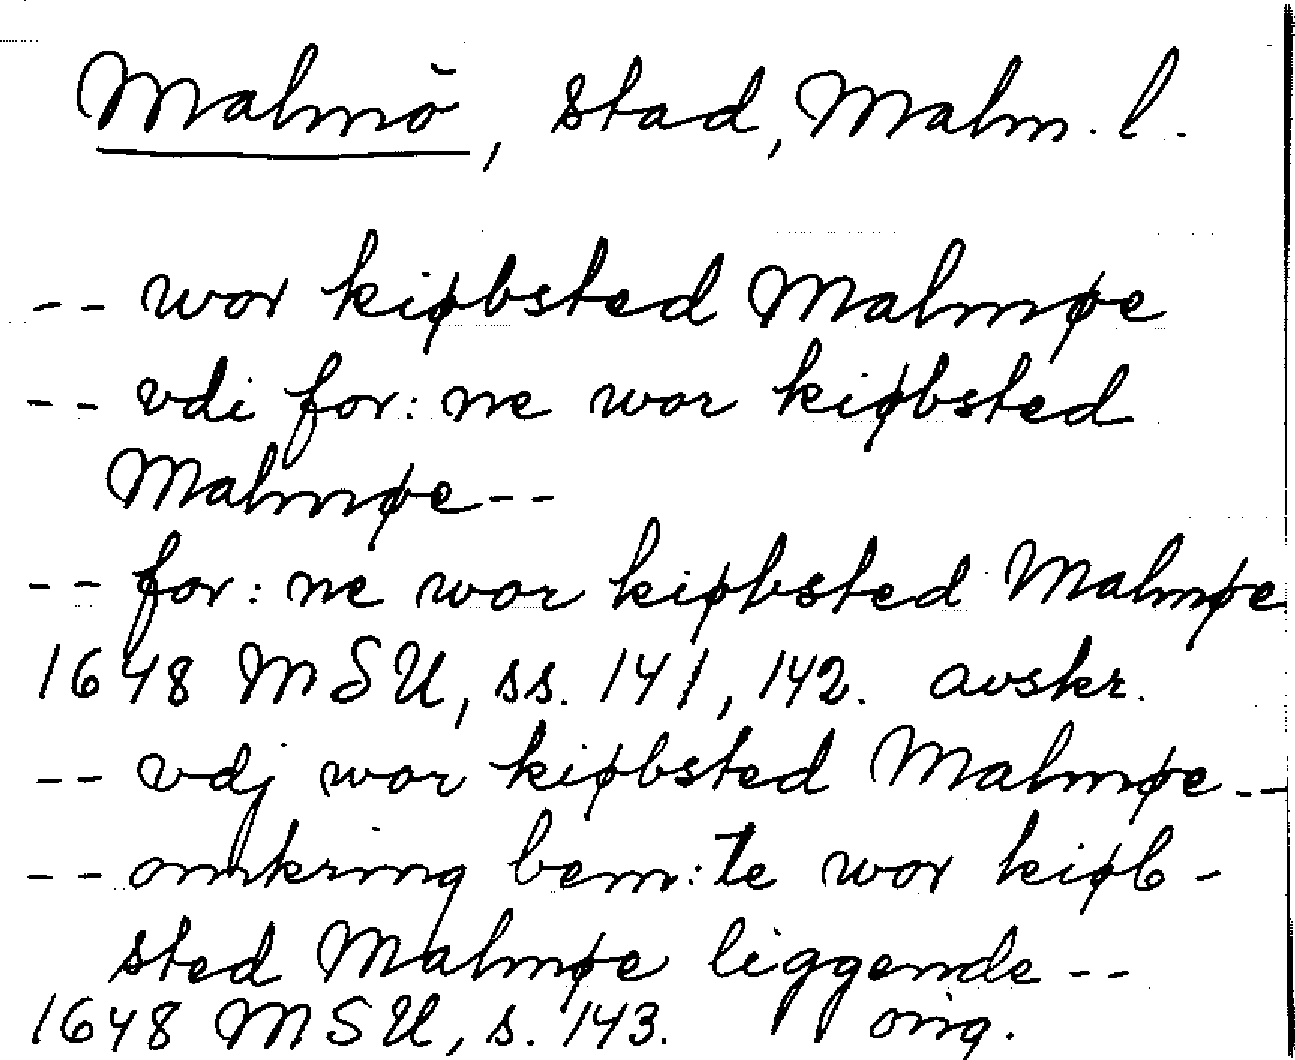 Malmö, stad, Malm. l.
-- wor kiøbsted Malmøe
-- vdi for:ne wor kiøbsted
Malmøe --
-- for:ne wor kiøbsted Malmøe
1648 MSU, ss. 141, 142. avskr.
-- vdj wor kiøbsted Malmøe --
-- omkring bem:te wor kiøb-
sted Malmøe liggende --
1648 MSU, s. 143. orig.